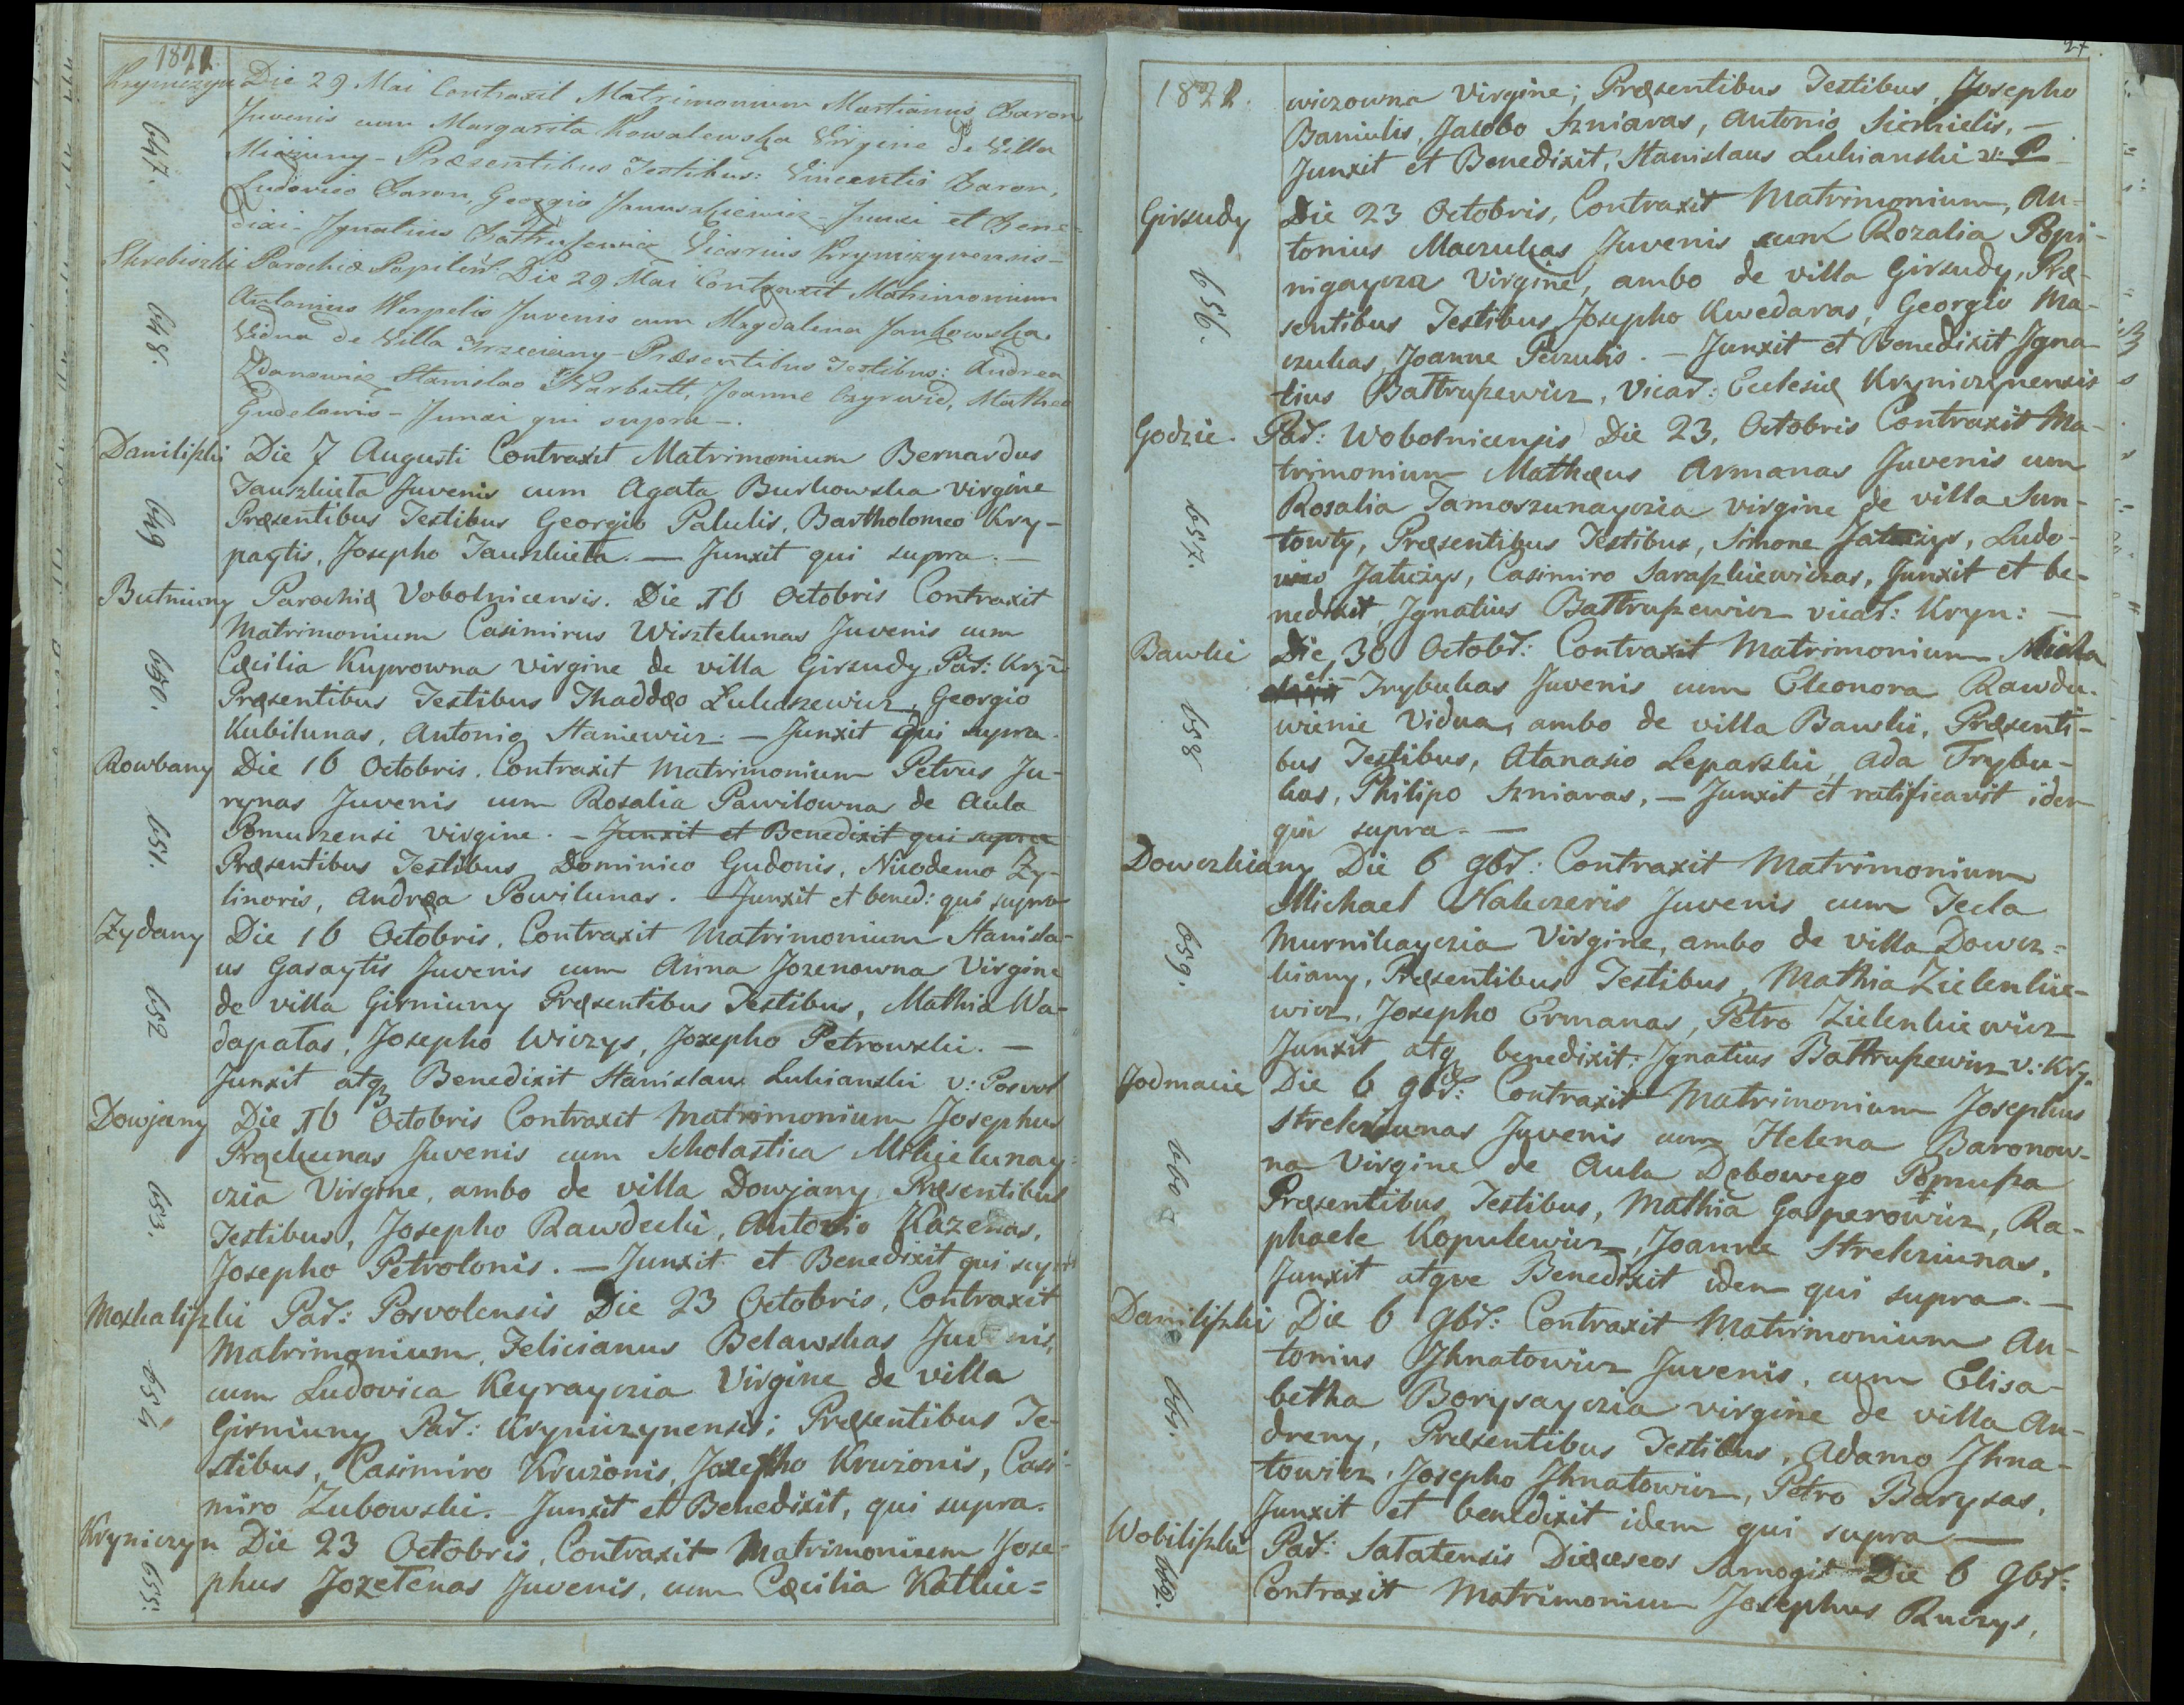 1822.
Kryniczyn Die 29 Mai Contraxit Matrimonium Martianus Baron
647. Juvenis cum Margarita Kowalewska Virgine de Villa
Miciuny - Præsentibus Testibus: Vincentio Baron,
Ludovico Baron, Georgio Januszkiewicz - Junxi et Bene-
dixi - Ignatius Battruszewicz Vicarius Krynicznensis -
Skrebiszki Parochiæ Popilen: Die 29 Mai Contraxit Matrimonium
648. Antonius Werpelis Juvenis cum Magdalena Jankowska
Vidua de Villa Trzeciany - Præsentibus Testibus: Andrea
Zdanowicz Stanislao Narbutt, Joanne Czyrwid, Matheo
Gudelawis - Junxi qui supra -.
Daniliszki Die 7 Augusti Contraxit Matrimonium Bernardus
649 Tauszkieta Juvenis cum Agata Burkowska Virgine
Præsentibus Testibus Georgio Palulis, Bartholomeo Kry-
paytis, Josepho Tauszkieta. — Junxit qui supra. —
Butniuny Parochiæ Vobolnicensis. Die 16 Octobris Contraxit
650. Matrimonium Casimirus Wisztelunas Juvenis cum
Cæcilia Kuprowna virgine de villa Girsudy, Par: Kryn
Præsentibus Testibus Thaddæo Lukaszewicz, Georgio
Kubilunas, Antonio Staniewicz. — Junxit qui supra.
Rowbany Die 16 Octobris. Contraxit Matrimonium Petrus Ju-
651. rynas Juvenis cum Rosalia Pawilowna de Aula
Pomuszensi virgine. - Junxit et Benedixit qui supra
Præsentibus Testibus Dominico Gudonis, Nicodemo Zy-
linoris, Andræa Powilunas. Junxit et bened: qui supra
Zydany Die 16 Octobris, Contraxit Matrimonium Stanisla-
652 us Gasaytis Juvenis cum Anna Jozenowna Virgine
de villa Girniuny Præsentibus Testibus, Mathia Wa-
dapatas, Josepho Wiczys, Josepho Petrowski. —
Junxit atq Benedixit Stanislaus Lukianski v: Posvol
Dowjany Die 16 Octobris Contraxit Matrimonium Josephus
653. Prąckunas Juvenis cum Scholastica Mikielunay-
czia Virgine, ambo de villa Dowjany Præsentibus
Testibus, Josepho Rawdecki, Antonio Kazenas,
Josepho Petrolonis. — Junxit et Benedixit qui supra
Moskaliszki Par: Posvolensis Die 23 Octobris, Contraxit
654 Matrimonium, Felicianus Belawskas Juvenis,
cum Ludovica Keyrayczia Virgine de villa
Girniuny Par: Kryniczynensis; Præsentibus Te-
stibus, Casimiro Kruzonis, Josepho Kruzonis, Casi-
miro Zubowski. - Junxit et Benedixit, qui supra.
Kryniczyn Die 23 Octobris, Contraxit Matrimonium Jose-
655. phus Jozetenas Juvenis, cum Cæcilia Katkie=
1822. wiczowna Virgine; Præsentibus Testibus, Josepho
Baniulis, Jacobo Szniaras, Antonio Siemielis, —
Junxit et Benedixit, Stanislaus Lukianski v: P
Girsudy Die 23 Octobris, Contraxit Matrimonium, An-
656. tonius Maczukas Juvenis cum Rozalia Popi-
nigaycza Virgine, ambo de villa Girsudy, Præ-
sentibus Testibus Josepho Kwedaras, Georgio Ma-
czukas, Joanne Peczulis. — Junxit et Benedixit Igna-
tius Battruszewicz, Vicar: Eclesiæ Kryniczynensis
Godzie. Par: Wobolnicensis Die 23, Octobris Contraxit Ma-
657. trimonium Mathæus Armanas Juvenis cum
Rosalia Tamoszunayczia virgine de villa Sun-
towty, Præsentibus Testibus, Simone Jatużys, Ludo-
vico Jatużys, Casimiro Saraszkiewiczas, Junxit et be-
nedixit, Ignatius Battruszewicz vicar: Kryn: —
Bawlie Die 30 Octobr: Contraxit Matrimonium Micha
658 el Trybukas Juvenis cum Eleonora Rawdu-
wienie Vidua, ambo de villa Bawlie, Præsenti-
bus Testibus, Atanasio Leparski, Ada Trybu-
kas, Philipo Szniaras, — Junxit et ratificavit idem
qui supra. —
Dowczkiany Die 6 9br: Contraxit Matrimonium
659. Michael Nakczeris Juvenis cum Tecla
Murnikayczia Virgine, ambo de villa Dowcz=
kiany, Præsentibus Testibus, Mathia Zielenkie-
wicz, Josepho Ermanas, Petro Zielenkiewicz
Junxit atq benedixit: Ignatius Battruszewicz v: Kry.
Jodmacie Die 6 9br: Contraxit Matrimonium Josephus
660 Strekziunas Juvenis cum Helena Baronow-
na Virgine de Aula Dębowego Pomusza
Præsentibus Testibus, Mathia Gasperowicz, Ra-
phaele Kopulewicz, Joanne Strekziunas,
Junxit atque Benedixit idem qui supra. —
Daniliszki Die 6 9br: Contraxit Matrimonium An-
661. tonius Ihnatowicz Juvenis, cum Elisa-
betha Borysayczia virgine de villa An-
dreny, Præsentibus Testibus, Adamo Ihna-
towicz, Josepho Ihnatowicz, Petro Barysas,
Junxit et benedixit idem qui supra —
Wobiliszki Par: Satatensis Diæceseos Samogit Die 6 9br:
662. Contraxit Matrimonium Josephus Ruczys,